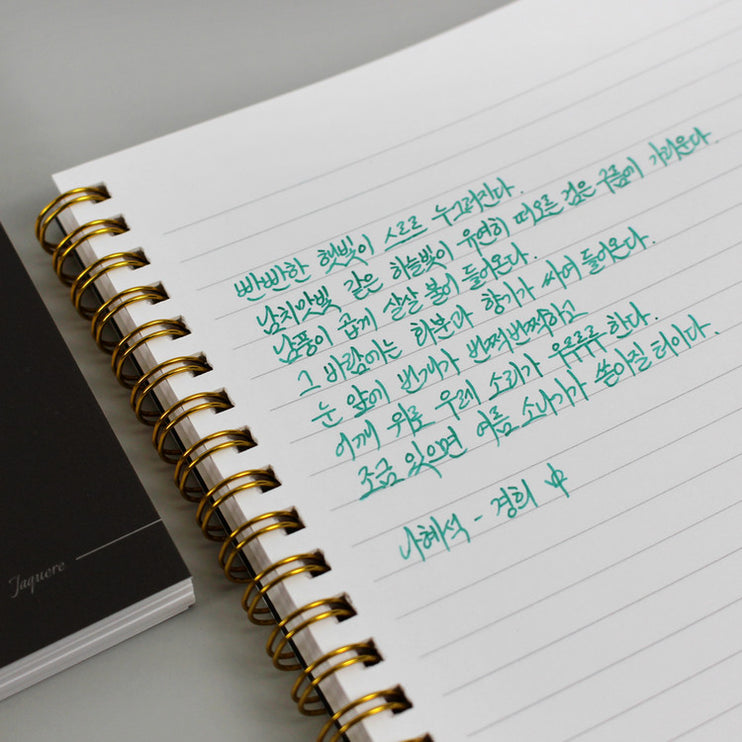 빤빤한 햇빛이 스르르 누그러진다.
남치맛빛 같은 하늘빛이 유연히 떠오른 검은 구름에 가리운다.
남풍이 곱게 살살 불어 들어온다.
그 바람에는 화분과 향기가 싸여 들어온다.
눈 앞에 번개가 번쩍번쩍하고
어깨 위로 우레 소리가 우루루루 한다.
조금 있으면 여름 소나기가 쏟아질 터이다.
나혜석 - 경희 中
Jaquere